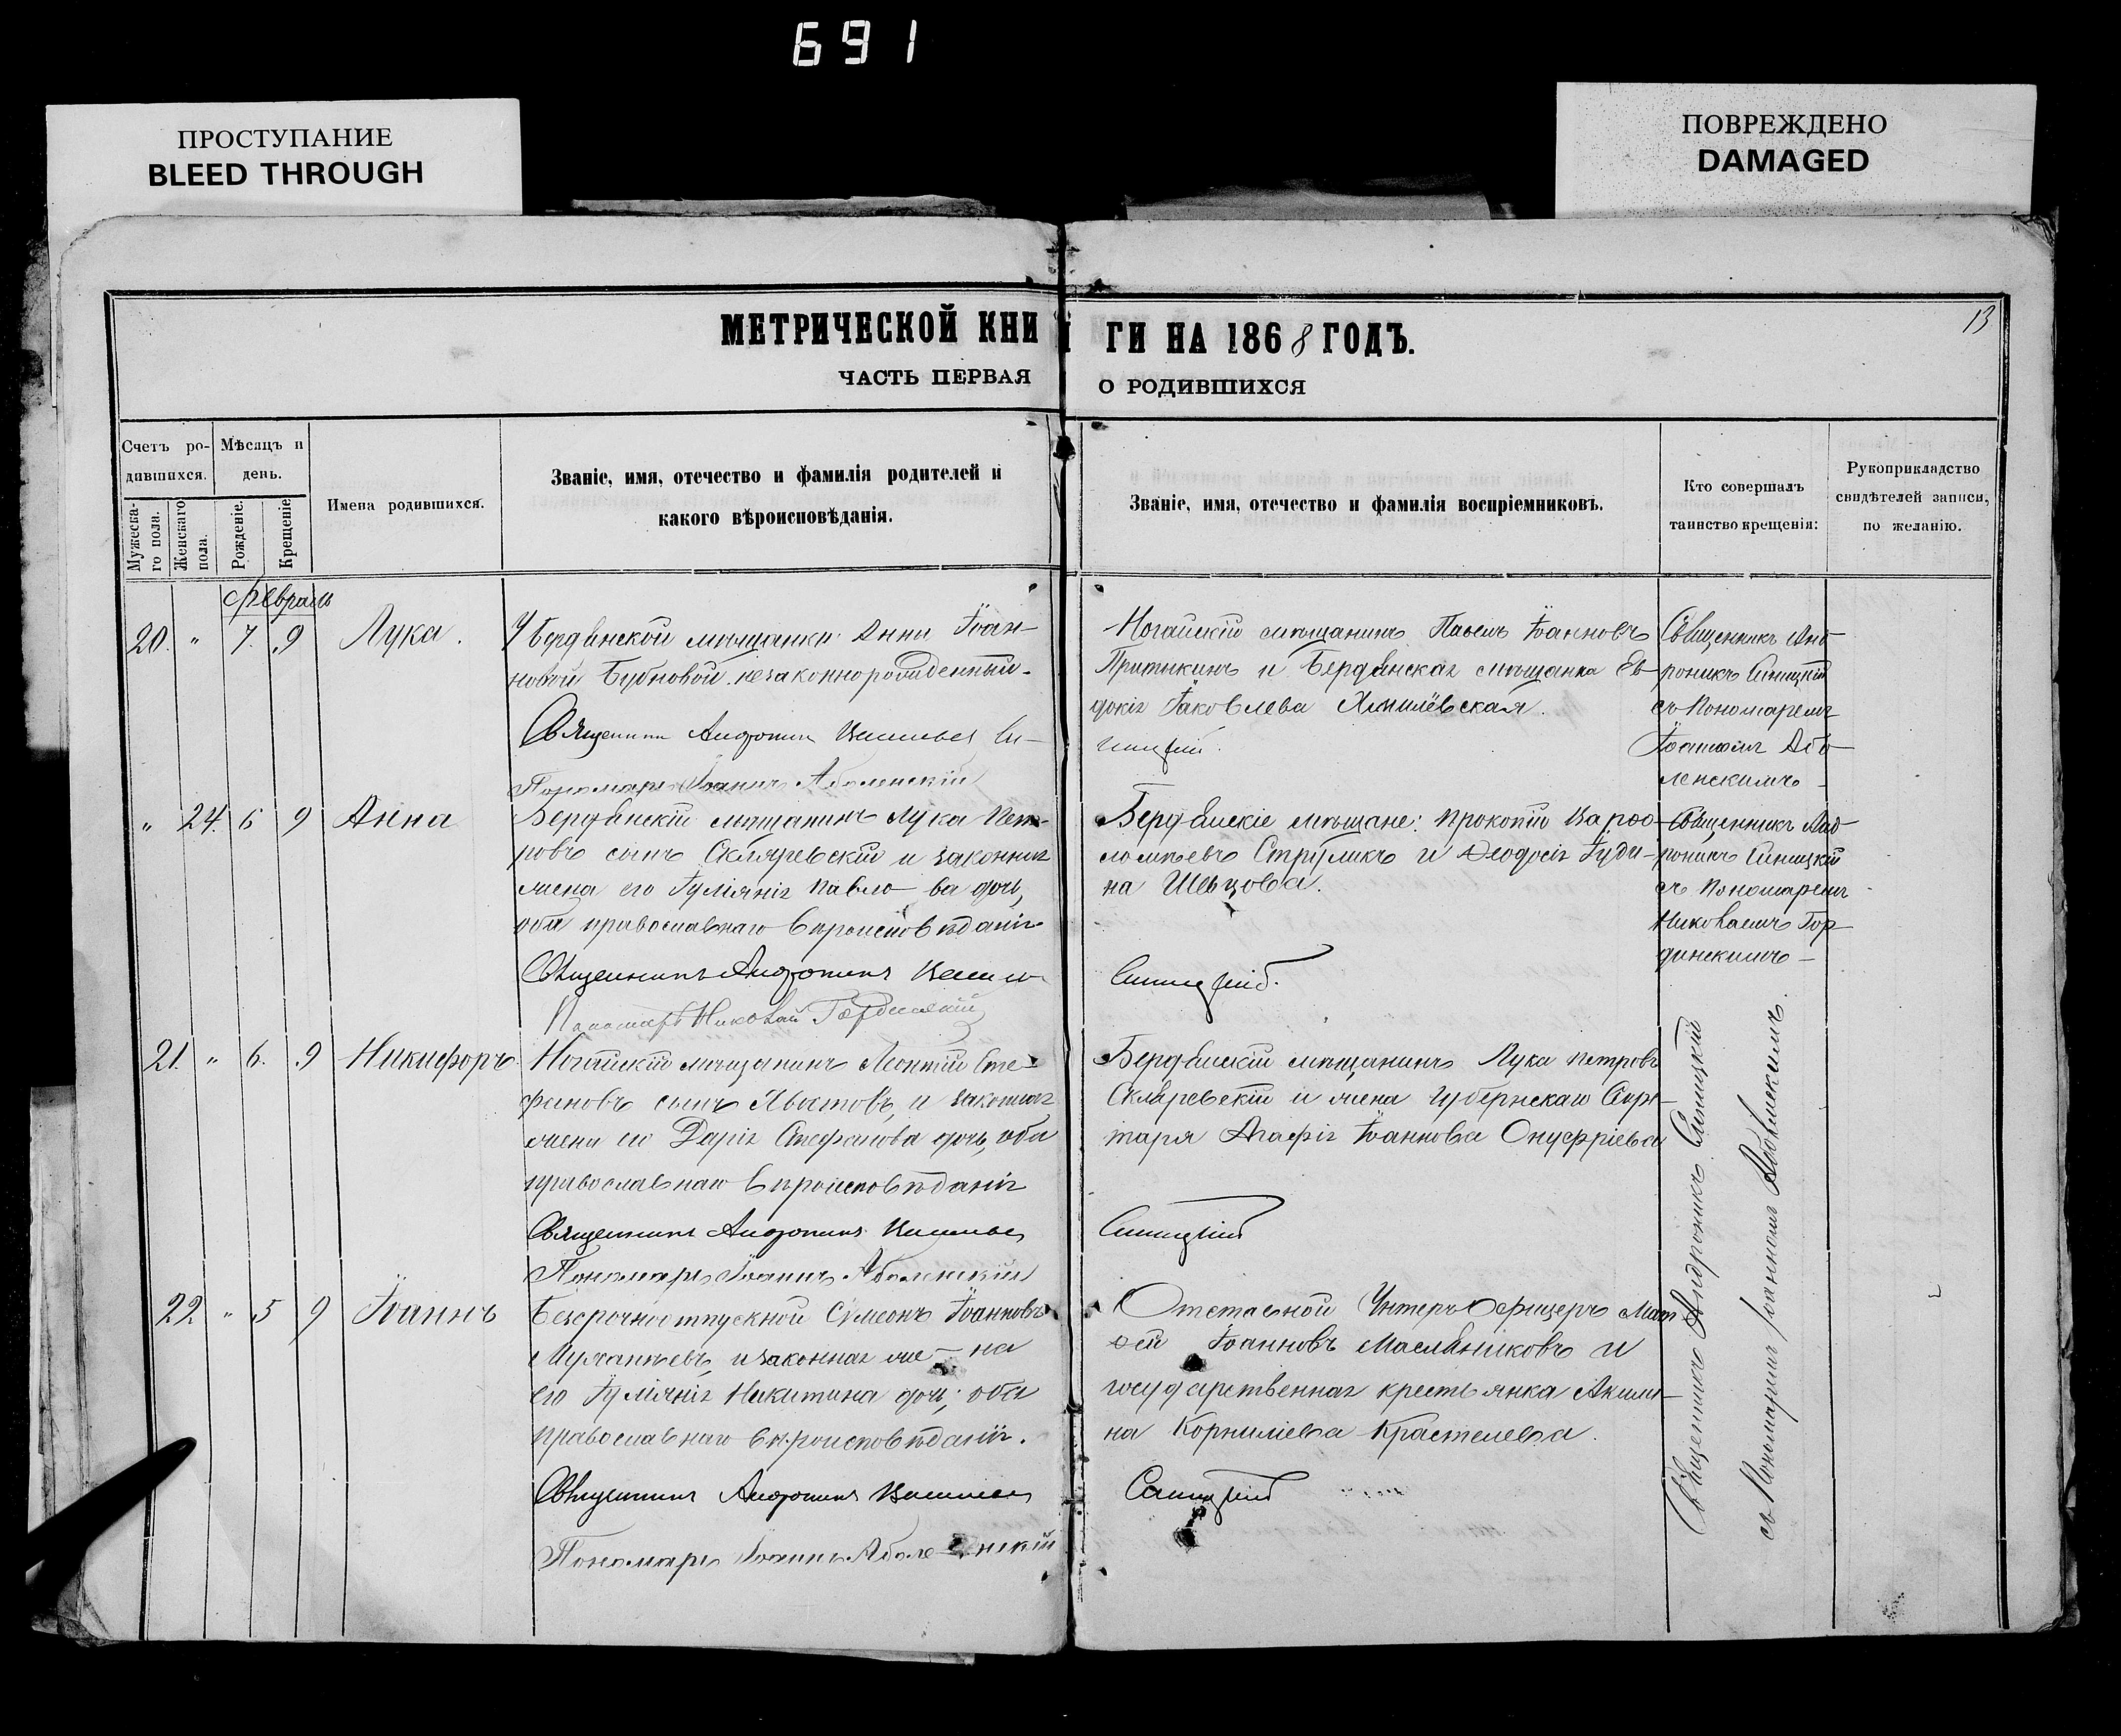 691
ПРОСТУПАНИЕ
BLEED THROUGH
ПОВРЕЖДЕНО
DAMAGED
13
МЕТРИЧЕСКОЙ КНИГИ НА 1868 ГОДЪ.
ЧАСТЬ ПЕРВАЯ О РОДИВШИХСЯ
Счетъ родившихся.
Мужескаго пола.
Женскаго пола.
Мѣсяцъ и день.
Рожденіе.
Крещеніе
Имена родившихся.
Званіе, имя, отечество и фамилія родителей и
какого вѣроисповѣданія.
Званіе, имя, отечество и фамилія воспріемниковъ.
Кто совершалъ
таинство крещенія:
Рукоприкладство
свидѣтелей записи,
по желанію.
февраль
20. " 7. 9 Лука.
У бердянской мѣщанки Анны Іоан-
новой Бубновой незаконнорожденный.
Священникъ Андроникъ Васильев Си-
ницкій.
Пономарь Іоаннъ Аболенскій
Ногайскій мѣщанинъ Павелъ Іоанновъ
и Бердянская мѣщанка Ев-
докія Іаковлева Хмилёвская.
Священникъ Анд-
роникъ Синицкій
съ Пономаремъ
Іоанномъ Або-
ленскимъ
" 24. 6 9 Анна
Бердянскій мѣщанинъ Лука Пет-
ровъ сынъ Скляревскій и законная
жена его Іуліанія Павло-ва дочь,
оба православнаго вѣроисповѣданія
Священникъ Андроникъ Василь
Синицкій.
Пономарь Николай Гординскій
Бердянскіе мѣщане: Прокопій Варфо-
ломѣевъ Струликъ и Ѳеодосія Іуди-
на Шевцова.
Священникъ Анд-
роникъ Синицкій
съ Пономаремъ
Николаемъ Гор-
динскимъ
21. " 6. 9 Никифоръ
Ногайскій мѣщанинъ Леонтій Сте-
фановъ сынъ Хвостовъ, и законная
жена его Дарія Стефанова дочь, оба
православнаго вѣроисповѣданія
Священникъ Андроникъ Васильев
Синицкій
Пономарь Іоаннъ Аболенскій
Бердянскій мѣщанинъ Лука Петровъ
Скляревскій и жена Губернскаго Секре-
таря Агафія Іоаннова Онуфріева
22 " 5 9 Іоаннъ
Безсрочноотпускной Сѵмеонъ Іоанновъ
и законная же-на
его Іуліанія Никитина дочь; оба
православнаго вѣроисповѣданія.
Священникъ Андроникъ Васильев
Синицкій
Пономарь Іоаннъ Аболенскій
Отставной Унтеръ Офицеръ Мат-
ѳей Іоанновъ Масляниковъ и
государственная крестьянка Акили-
на Корниліева Крастелева.
Священникъ Андроникъ Синицкій
съ Пономаремъ Іоанномъ Аболенскимъ.